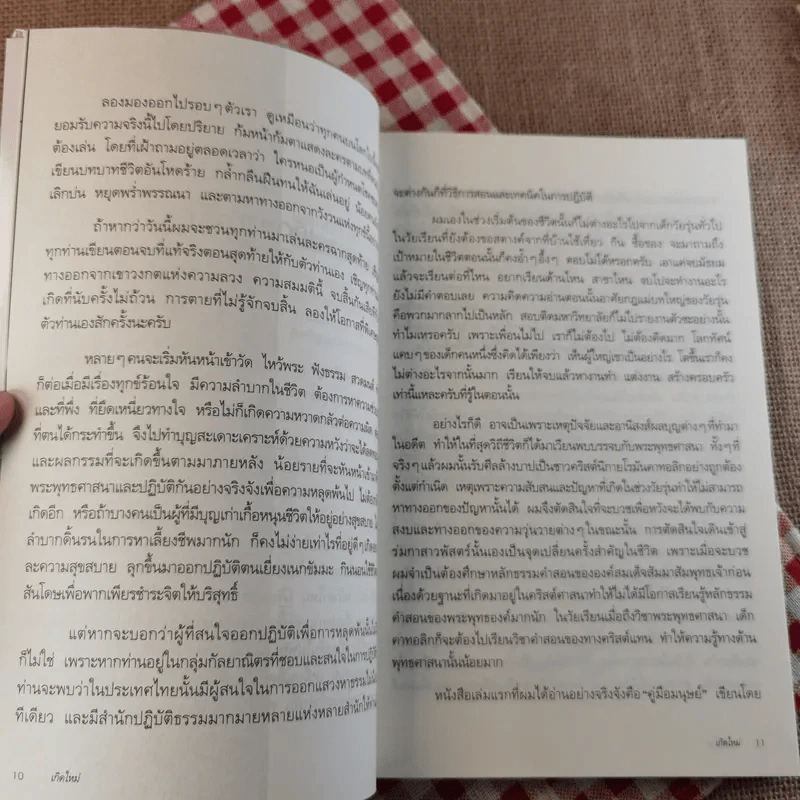 ลองมองออกไปรอบๆตัวเรา ดูเหมือนว่าทุกคนบนโลก
ยอมรับความจริงนี้ไปโดยปริยาย ก้มหน้าก้มตาแสดงละครตามบท
ต้องเล่น โดยที่เฝ้าถามอยู่ตลอดเวลาว่า ใครหนอเป็นผู้กำหนด
เขียนบทบาทชีวิตอันโหดร้าย กล้ำกลืนฝืนทนให้ฉันเล่นอยู่
เลิกบ่น หยุดพร่ำพรรณนา และตามหาทางออกจากวังวนแห่งทุกข์
ถ้าหากว่าวันนี้ผมจะชวนทุกท่านมาเล่นละครฉากสุดท้าย
ทุกท่านเขียนตอนจบที่แท้จริงตอนสุดท้ายให้กับตัวท่านเอง
ทางออกจากเขาวงกตแห่งความลวง ความสมมตินี้ จบสิ้นกันเสียที
เกิดที่นับครั้งไม่ถ้วน การตายที่ไม่รู้จักจบสิ้น ลองให้โอกาส
ตัวท่านเองสักครั้งนะครับ
หลายๆคนจะเริ่มหันหน้าเข้าวัด ไหว้พระ ฟังธรรม สวดมนต์
ก็ต่อเมื่อมีเรื่องทุกข์ร้อนใจ มีความลำบากในชีวิต ต้องการหา
และที่พึ่ง ที่ยึดเหนี่ยวทางใจ หรือไม่ก็เกิดความหวาดกลัวต่อความผิด
ที่ตนได้กระทำขึ้น จึงไปทำบุญสะเดาะเคราะห์ด้วยความหวังว่าจะได้
และผลกรรมที่จะเกิดขึ้นตามมาภายหลัง น้อยรายที่จะหันหน้าเข้ามา
พระพุทธศาสนาและปฏิบัติกันอย่างจริงจังเพื่อความหลุดพ้นไป
เกิดอีก หรือถ้าบางคนเป็นผู้ที่มีบุญเก่าเกื้อหนุนชีวิตให้อยู่อย่างสุขสบาย
ลำบากดิ้นรนในการหาเลี้ยงชีพมากนัก ก็คงไม่ง่ายเท่าไรที่อยู่ดีๆ
ละความสุขสบาย ลุกขึ้นมาออกปฏิบัติตนเยี่ยงเนกขัมมะ กินนอนใช้ชีวิต
สันโดษเพื่อพากเพียรชำระจิตให้บริสุทธิ์
แต่หากจะบอกว่าผู้ที่สนใจออกปฏิบัติเพื่อการหลุดพ้นนั้น
ก็ไม่ใช่ เพราะหากท่านอยู่ในกลุ่มกัลยาณมิตรที่ชอบและสนใจในการ
ท่านจะพบว่าในประเทศไทยนั้นมีผู้สนใจในการออกแสวงหาธรรม
ทีเดียว และมีสำนักปฏิบัติธรรมมากมายหลายแห่งหลายสำนัก
10 เกิดใหม่
จะต่างกันก็ที่วิธีการสอนและเทคนิคในการปฏิบัติ
ผมเองในช่วงเริ่มต้นของชีวิตนั้นก็ไม่ต่างอะไรไปจากเด็กวัยรุ่นทั่วไป
ในวัยเรียนที่ยังต้องขอสตางค์จากที่บ้านใช้เที่ยว กิน ซื้อของ จะมาถามถึง
เป้าหมายในชีวิตตอนนั้นก็คงอ้ำๆอึ้งๆ ตอบไม่ได้หรอกครับ เอาแค่จบมัธยม
แล้วจะเรียนต่อที่ไหน อยากเรียนด้านไหน สาขาไหน จบไปจะทำงานอะไร
ยังไม่มีคำตอบเลย ความคิดความอ่านตอนนั้นอาศัยกฎแม่บทใหญ่ของวัยรุ่น
คือพวกมากลากไปเป็นหลัก สอบติดมหาวิทยาลัยก็ไม่ไปรายงานตัวซะอย่างนั้น
ทำไมเหรอครับ เพราะเพื่อนไม่ไป เราก็ไม่ต้องไป ไม่ต้องคิดมาก โลกทัศน์
แคบๆของเด็กคนหนึ่งซึ่งคิดได้เพียงว่า เห็นผู้ใหญ่เขาเป็นอย่างไร โตขึ้นเราก็คง
ไม่ต่างอะไรจากนั้นมาก เรียนให้จบแล้วหางานทำ แต่งงาน สร้างครอบครัว
เท่านี้แหละครับที่รู้ในตอนนั้น
อย่างไรก็ดี อาจเป็นเพราะเหตุปัจจัยและอานิสงส์ผลบุญต่างๆที่ทำมา
ในอดีต ทำให้ในที่สุดวิถีชีวิตก็ได้มาเวียนพบบรรจบกับพระพุทธศาสนา ทั้งๆที่
จริงๆแล้วผมนั้นรับศีลล้างบาปเป็นชาวคริสต์นิกายโรมันคาทอลิกอย่างถูกต้อง
ตั้งแต่กำเนิด เหตุเพราะความสับสนและปัญหาที่เกิดในช่วงวัยรุ่นทำให้ไม่สามารถ
หาทางออกของปัญหานั้นได้ ผมจึงตัดสินใจที่จะบวชเพื่อหวังจะได้พบกับความ
สงบและทางออกของความวุ่นวายต่างๆในขณะนั้น การตัดสินใจเดินเข้าสู่
ร่มกาสาวพัสตร์นั้นเองเป็นจุดเปลี่ยนครั้งสำคัญในชีวิต เพราะเมื่อจะบวช
ผมจำเป็นต้องศึกษาหลักธรรมคำสอนขององค์สมเด็จสัมมาสัมพุทธเจ้าก่อน
เนื่องด้วยฐานะที่เกิดมาอยู่ในคริสต์ศาสนาทำให้ไม่ได้มีโอกาสเรียนรู้หลักธรรม
คำสอนของพระพุทธองค์มากนัก ในวัยเรียนเมื่อถึงวิชาพระพุทธศาสนา เด็ก
คาทอลิกก็จะต้องไปเรียนวิชาคำสอนของทางคริสต์แทน ทำให้ความรู้ทางด้าน
พุทธศาสนานั้นน้อยมาก
หนังสือเล่มแรกที่ผมได้อ่านอย่างจริงจังคือ “คู่มือมนุษย์” เขียนโดย
เกิดใหม่ 11